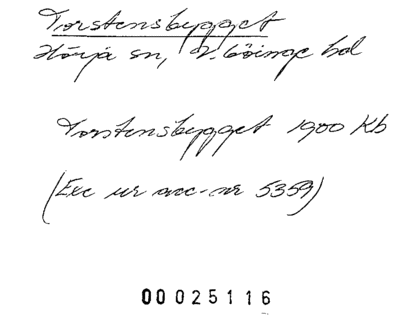 Torstensbygget
Hörja sn, V. Göinge hd
Torstensbygget 1900 Kb
(Exc ur acc-nr 5359)
00025116